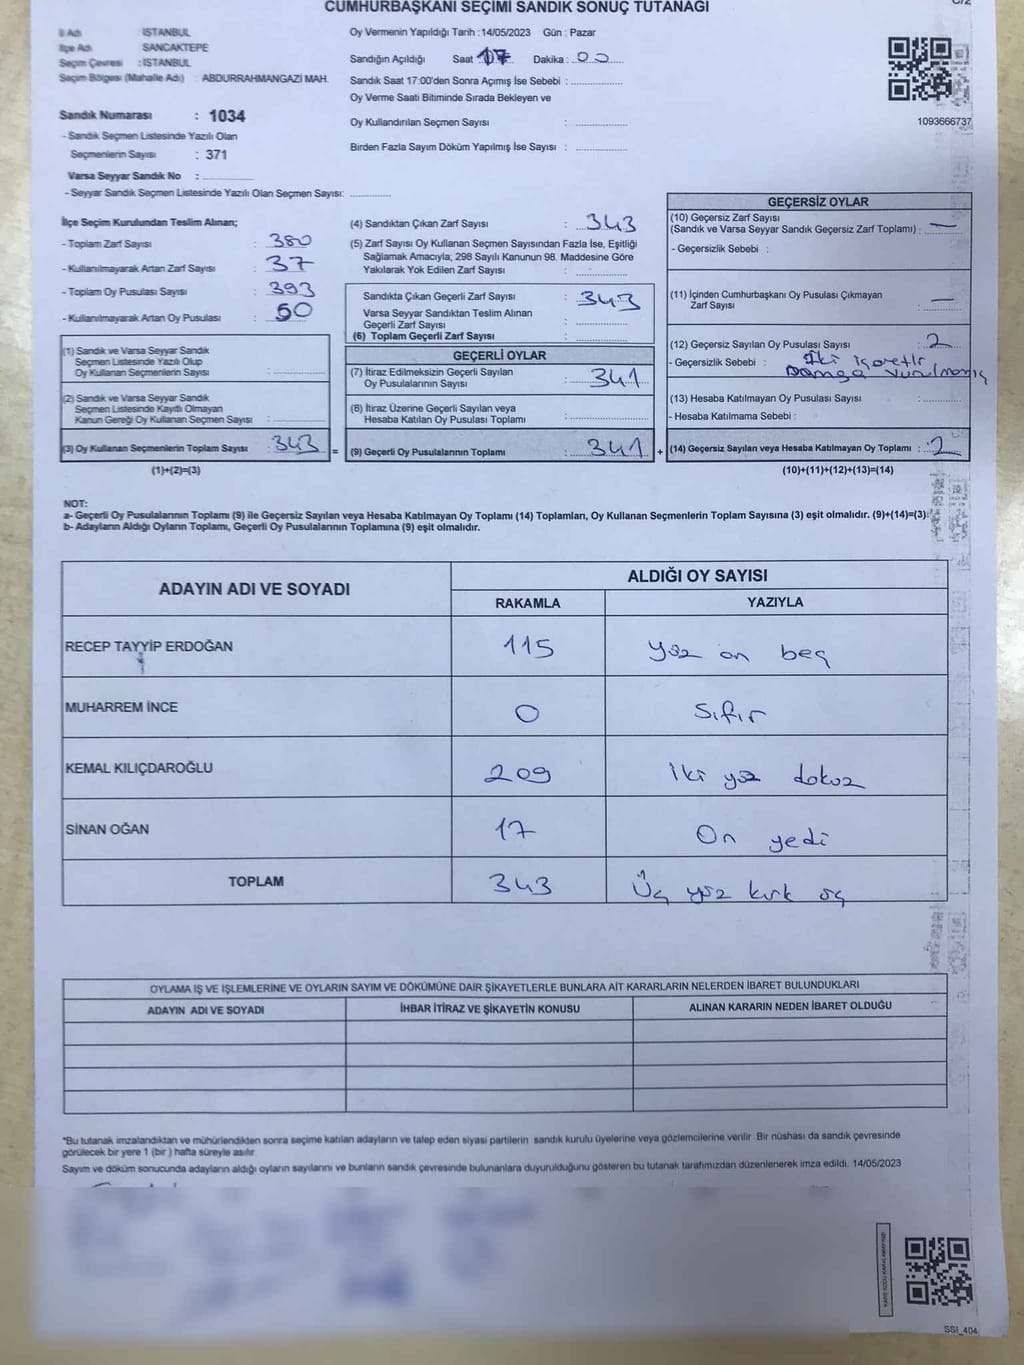 CUMHURBAŞKANI SEÇİMİ SANDIK SONUÇ TUTANAĞI
İl Adı : İSTANBUL
İlçe Adı : SANCAKTEPE
Seçim Çevresi : İSTANBUL
Seçim Bölgesi (Mahalle Adı) : ABDURRAHMANGAZİ MAH.
Sandık Numarası : 1034
- Sandık Seçmen Listesinde Yazılı Olan
Seçmenlerin Sayısı : 371
Varsa Seyyar Sandık No :
- Seyyar Sandık Seçmen Listesinde Yazılı Olan Seçmen Sayısı:
Oy Vermenin Yapıldığı Tarih :14/05/2023 Gün : Pazar
Sandığın Açıldığı Saat 17 Dakika : 00
Sandık Saat 17:00'den Sonra Açımış İse Sebebi :
Oy Verme Saati Bitiminde Sırada Bekleyen ve
Oy Kullandırılan Seçmen Sayısı :
Birden Fazla Sayım Döküm Yapılmış İse Sayısı :
1093666737
İlçe Seçim Kurulundan Teslim Alınan;
- Toplam Zarf Sayısı : 380
- Kullanılmayarak Artan Zarf Sayısı : 37
- Toplam Oy Pusulası Sayısı : 393
- Kullanılmayarak Artan Oy Pusulası : 50
(1) Sandık ve Varsa Seyyar Sandık
Seçmen Listesinde Yazılı Olup
Oy Kullanan Seçmenlerin Sayısı :
(2) Sandık ve Varsa Seyyar Sandık
Seçmen Listesinde Kayıtlı Olmayan
Kanun Gereği Oy Kullanan Seçmen Sayısı :
(3) Oy Kullanan Seçmenlerin Toplam Sayısı : 343
(1)+(2)=(3)
(4) Sandıktan Çıkan Zarf Sayısı : 343
(5) Zarf Sayısı Oy Kullanan Seçmen Sayısından Fazla İse, Eşitliği
Sağlamak Amacıyla; 298 Sayılı Kanunun 98. Maddesine Göre
Yakılarak Yok Edilen Zarf Sayısı :
Sandıkta Çıkan Geçerli Zarf Sayısı : 343
Varsa Seyyar Sandıktan Teslim Alınan
Geçerli Zarf Sayısı :
(6) Toplam Geçerli Zarf Sayısı :
GEÇERLİ OYLAR
(7) İtiraz Edilmeksizin Geçerli Sayılan
Oy Pusulalarının Sayısı : 341
(8) İtiraz Üzerine Geçerli Sayılan veya
Hesaba Katılan Oy Pusulası Toplamı :
= (9) Geçerli Oy Pusulalarının Toplamı : 341 +
GEÇERSİZ OYLAR
(10) Geçersiz Zarf Sayısı
(Sandık ve Varsa Seyyar Sandık Geçersiz Zarf Toplamı) : —
- Geçersizlik Sebebi :
(11) İçinden Cumhurbaşkanı Oy Pusulası Çıkmayan
Zarf Sayısı : —
(12) Geçersiz Sayılan Oy Pusulası Sayısı : 2
- Geçersizlik Sebebi : İki işaretlr
Damga vurulmamış
(13) Hesaba Katılmayan Oy Pusulası Sayısı :
- Hesaba Katılmama Sebebi :
(14) Geçersiz Sayılan veya Hesaba Katılmayan Oy Toplamı : 2
(10)+(11)+(12)+(13)=(14)
NOT:
a- Geçerli Oy Pusulalarının Toplamı (9) ile Geçersiz Sayılan veya Hesaba Katılmayan Oy Toplamı (14) Toplamları, Oy Kullanan Seçmenlerin Toplam Sayısına (3) eşit olmalıdır. (9)+(14)=(3)
b- Adayların Aldığı Oyların Toplamı, Geçerli Oy Pusulalarının Toplamına (9) eşit olmalıdır.
ADAYIN ADI VE SOYADI ALDIĞI OY SAYISI
RAKAMLA YAZIYLA
RECEP TAYYİP ERDOĞAN 115 yüz on beş
MUHARREM İNCE 0 Sıfır
KEMAL KILIÇDAROĞLU 209 İki yüz dokuz
SİNAN OĞAN 17 On yedi
TOPLAM 343 Üç yüz kırk üç
OYLAMA İŞ VE İŞLEMLERİNE VE OYLARIN SAYIM VE DÖKÜMÜNE DAİR ŞİKAYETLERLE BUNLARA AİT KARARLARIN NELERDEN İBARET BULUNDUKLARI
ADAYIN ADI VE SOYADI İHBAR İTİRAZ VE ŞİKAYETİN KONUSU ALINAN KARARIN NEDEN İBARET OLDUĞU
*Bu tutanak imzalandıktan ve mühürlendikten sonra seçime katılan adayların ve talep eden siyasi partilerin sandık kurulu üyelerine veya gözlemcilerine verilir. Bir nüshası da sandık çevresinde
görülecek bir yere 1 (bir ) hafta süreyle asılır.
Sayım ve döküm sonucunda adayların aldığı oyların sayılarını ve bunların sandık çevresinde bulunanlara duyurulduğunu gösteren bu tutanak tarafımızdan düzenlenerek imza edildi. 14/05/2023
SSI_404